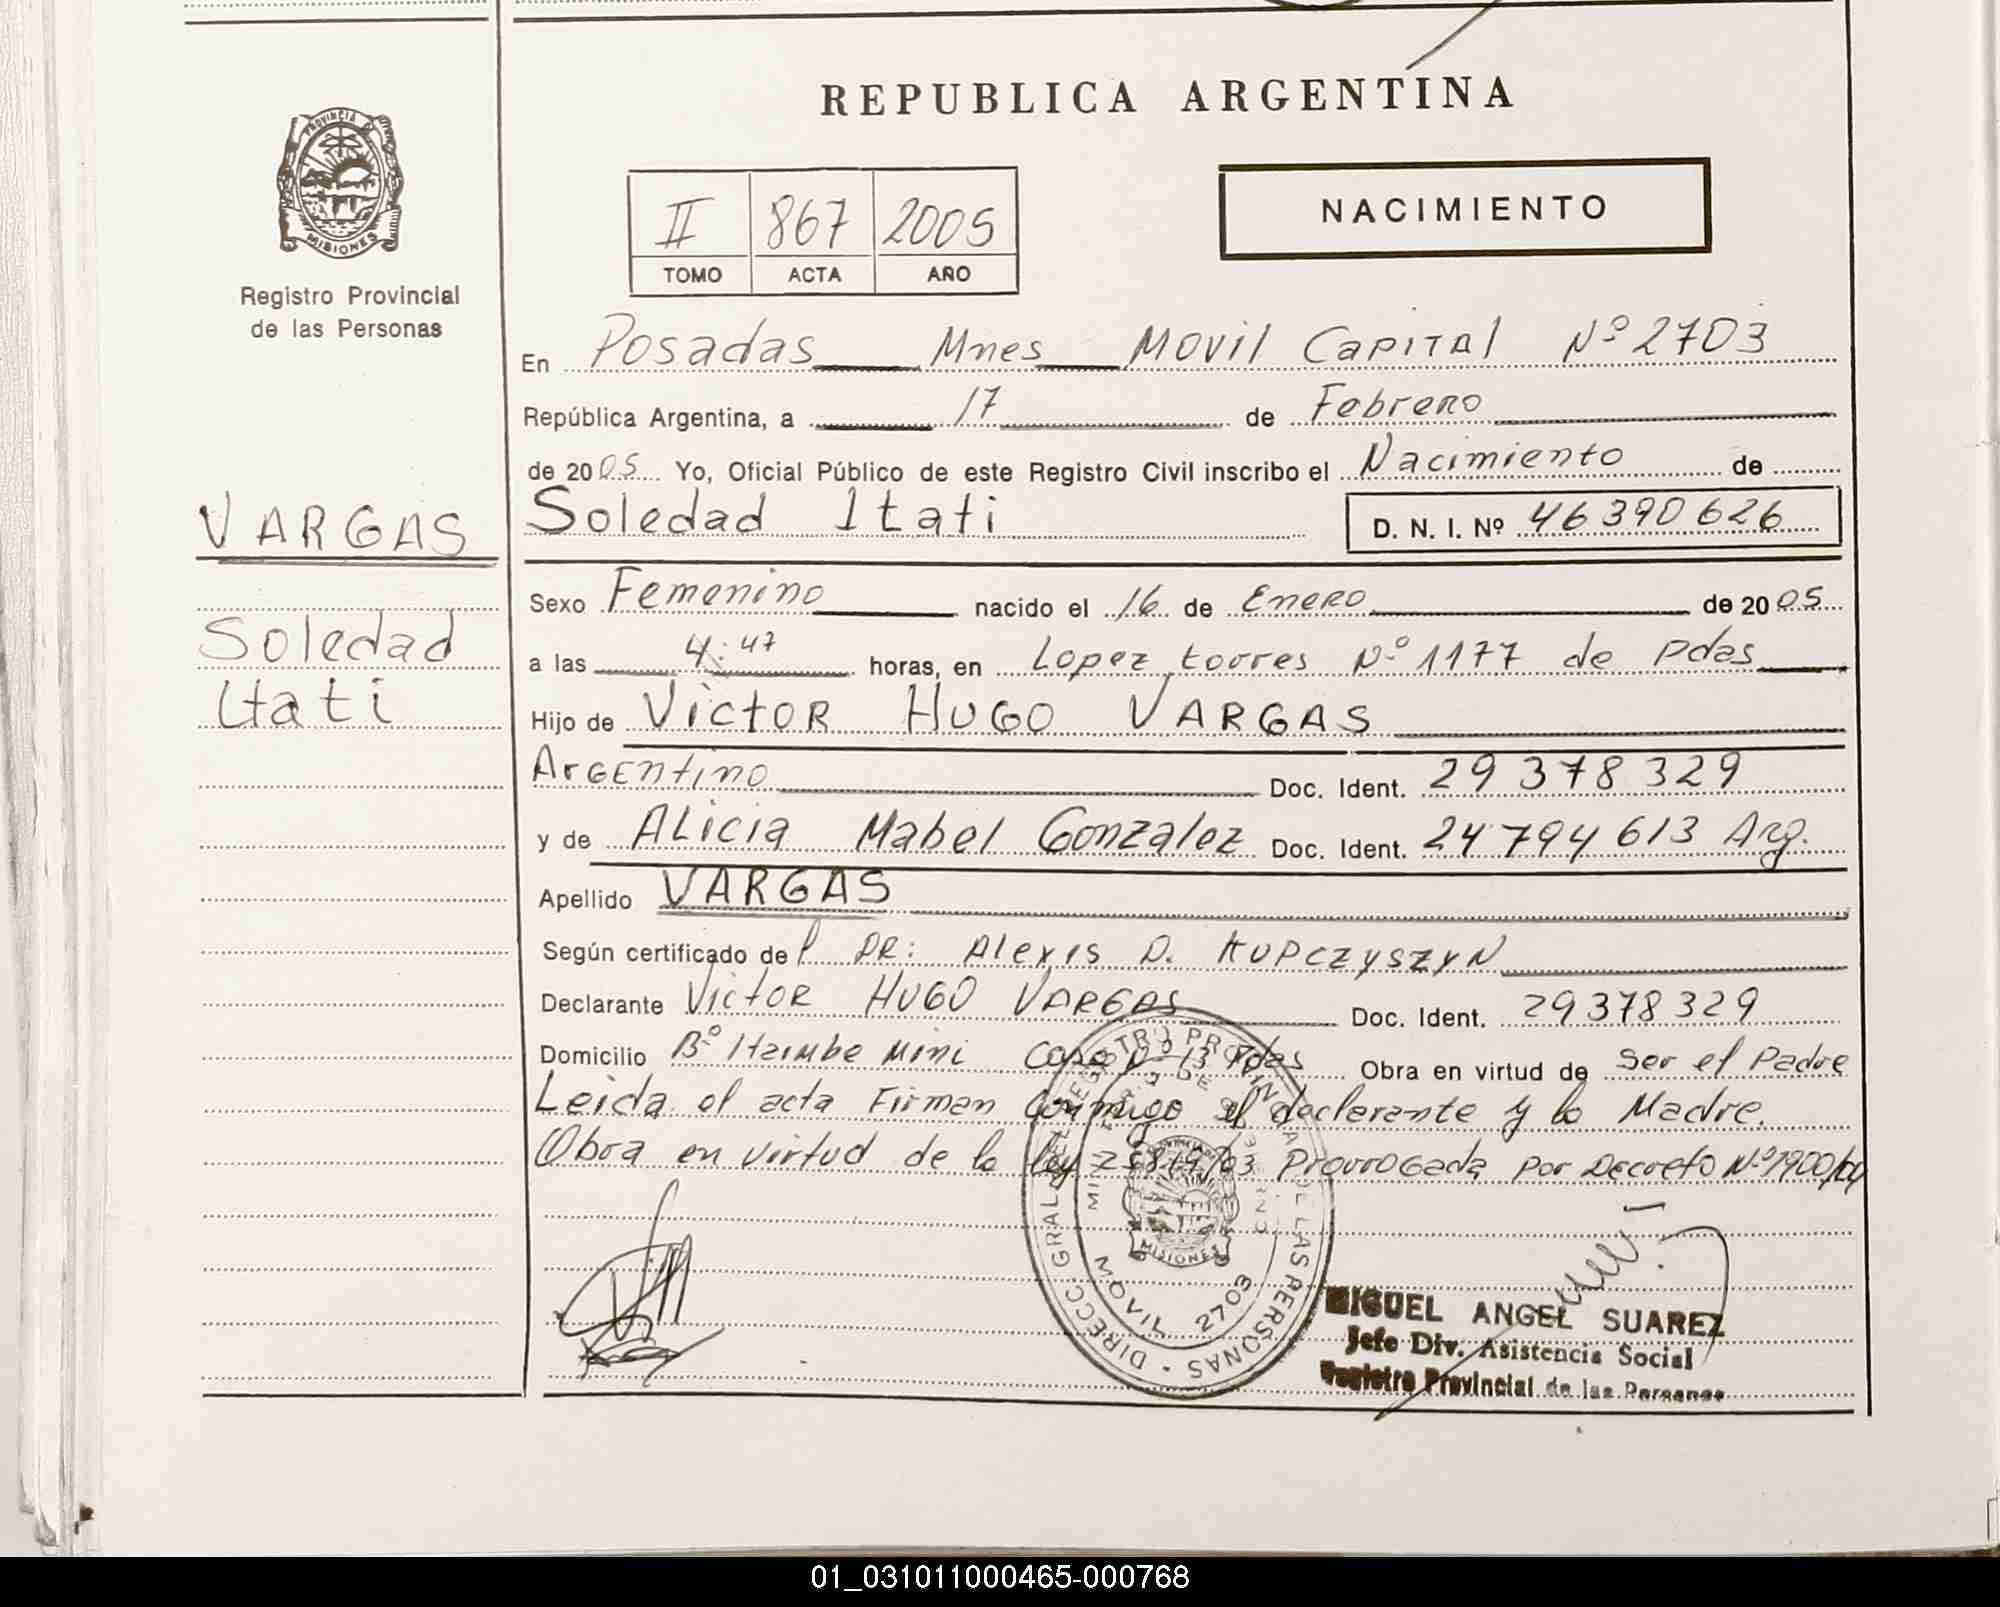 REPUBLICA ARGENTINA
PROVINCIA DE
MISIONES
Registro Provincial
de las Personas
II 867 2005
TOMO ACTA AÑO
NACIMIENTO
En Posadas Mnes Movil Capital Nº 2703
República Argentina, a 17 de Febrero
de 2005 Yo, Oficial Público de este Registro Civil inscribo el Nacimiento de
VARGAS
Soledad Itati
D. N. I. Nº 46390626
Sexo Femenino nacido el 16 de Enero de 2005
Soledad
a las 4:47 horas, en Lopez torres Nº 1177 de Pdas
Itati
Hijo de Victor Hugo VARGAS
Argentino Doc. Ident. 29 378 329
y de Alicia Mabel Gonzalez Doc. Ident. 24 794 613 Arg.
Apellido VARGAS
Según certificado del DR: Alexis D. Kupczyszyn
Declarante Victor Hugo Vargas Doc. Ident. 29378329
Domicilio Bº Itaimbe Mini Casa Nº 13 Pdas Obra en virtud de Ser el Padre
Leida el acta Firman Conmigo el declarante y la Madre.
Obra en virtud de la ley 25819/03 Prorrogada por Decreto Nº 1900/04
DIRECC. GRAL. DE REGISTRO PROVINCIAL DE LAS PERSONAS
MOVIL 2703
MISIONES
MIGUEL ANGEL SUAREZ
Jefe Div. Asistencia Social
Registro Provincial de las Personas
01_031011000465-000768